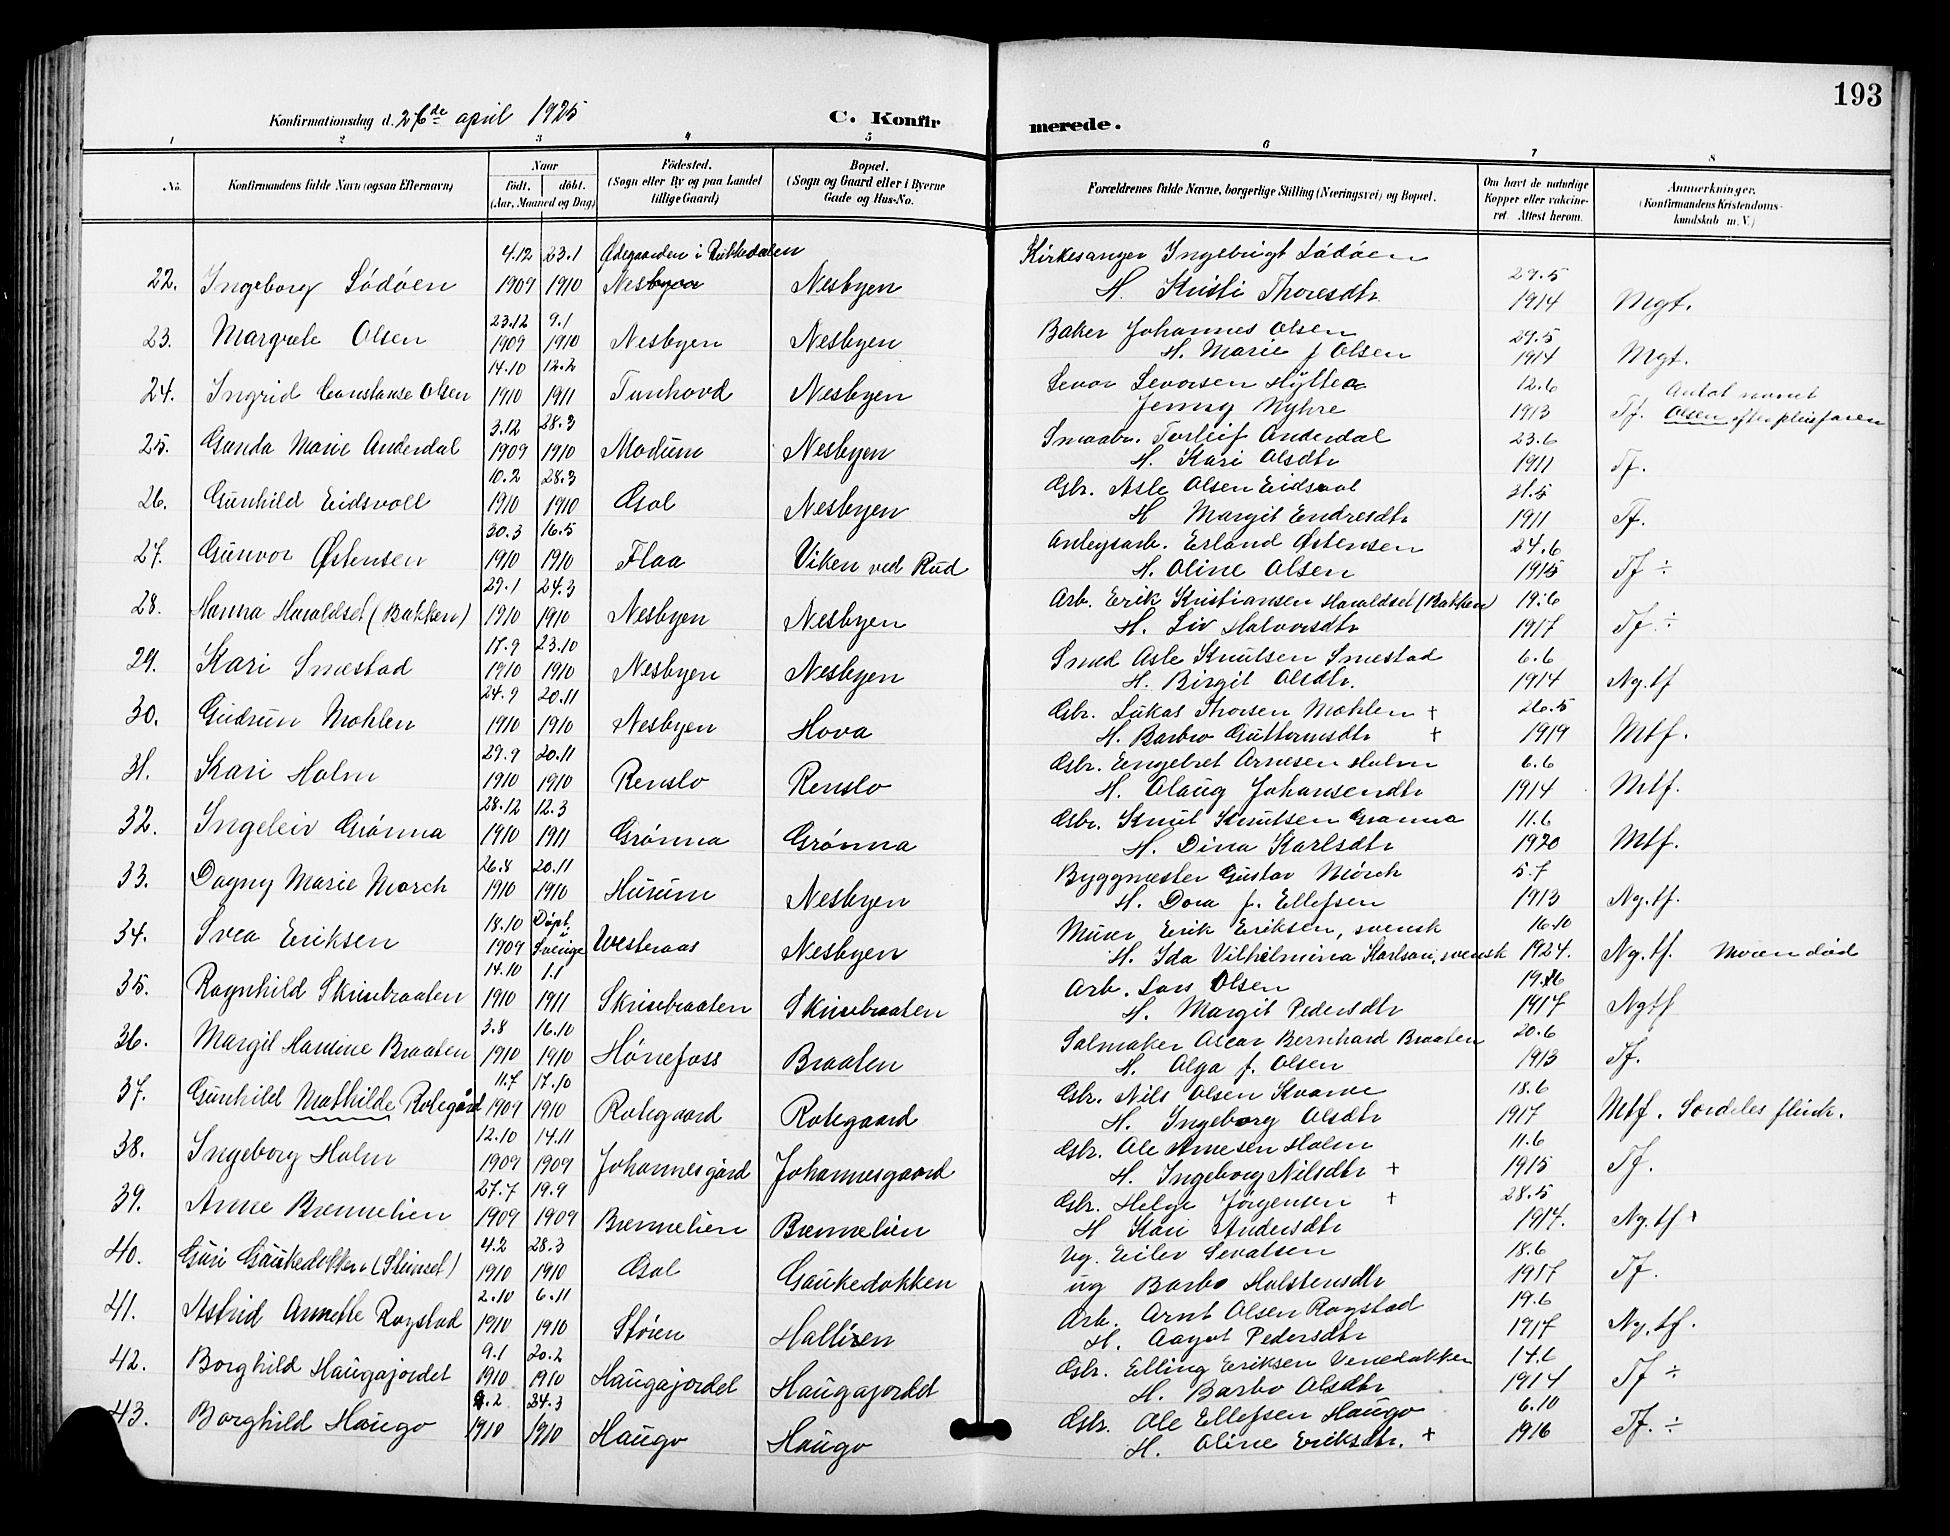 193
Konfirmationsdag d. 26de april 1925 C. Konfirmerede.
1 2 3 4 5 6 7 8
No. Konfirmandens fulde Navn (ogsaa Efternavn) Naar født. døbt. (Aar, Maaned og Dag) Födested. (Sogn eller By og paa Landet tillige Gaard) Bopæl. (Sogn og Gaard eller i Byerne Gade og Hus-No. Forældrenes fulde Navne, borgerlige Stilling (Næringsvei) og Bopæl. Om havt de naturlige Kopper eller vakcineret. Attest herom. Anmerkninger. (Konfirmandens Kristendomskundskab m. V.)
4.12 23.1 Ødegaarden i Rukkedalen Kirkesanger Ingebrigt Sødøen 29.5
22. Ingeborg Sødøen 1909 1910 Nesbyen Nesbyen H. Kristi Thoresdtr 1914 Mgt.
23.12 9.1 Baker Johannes Olsen 29.5
23. Margrete Olsen 1909 1910 Nesbyen Nesbyen H. Marie f Olsen 1914 Mgt.
14.10 12.2 Sevor Sevorsen 12.6 Antat navnet
24. Ingrid Constanse Olsen 1910 1911 Tunhovd Nesbyen Jenny Myhre 1913 Tf. Olsen efter pleiefaren
3.12 28.3 Smaabr. Torleif Anderdal 23.6
25. Gunda Marie Anderdal 1909 1910 Modum Nesbyen H. Kari Olsdtr 1911 Tf.
10.2 28.3 Gbr. Asle Olsen Eidsvol 31.5
26. Gunhild Eidsvoll 1910 1910 Gol Nesbyen H Margit Endresdtr 1911 Tf.
30.3 16.5 Anlegsarb. Erland Østensen 24.6
27. Gunvor Østensen 1910 1910 Flaa Viken ved Rud H. Oline Olsen 1915 Tf ÷
29.1 24.3 Arb. Erik Kristiansen Haraldset (Bakken) 19.6
28. Hanna Haraldset (Bakken) 1910 1910 Nesbyen Nesbyen H. Liv Halvorsdtr 1917 Tf. ÷
17.9 23.10 Smed Asle Knutsen Smestad 6.6
29. Kari Smestad 1910 1910 Nesbyen Nesbyen H. Birgit Olsdtr. 1914 Ng.tf
24.9 20.11 Gbr. Lukas Thorsen Mohlen + 26.5
30. Gudrun Mohlen 1910 1910 Nesbyen Hova H. Barbro Guttormsdtr + 1919 Mtf.
29.9 20.11 Gbr. Engebret Arnesen Holm 6.6
31. Kari Holm 1910 1910 Renslo Renslo H. Olaug Johansendtr 1914 Mtf.
28.12 12.3 Gbr. Knut Knutsen Grønna 11.6
32. Ingeleiv Grønna 1910 1911 Grønna Grønna H. Dina Karlsdtr 1920 Mtf.
26.8 20.11 Byggmester Gustav Mørch 5.7
33. Dagny Marie Mørch 1910 1910 Hurum Nesbyen H. Dora f. Ellefsen 1913 Ng.tf.
18.10 Døpt i Murer Erik Eriksen, svensk 16.10
34. Svea Eriksen 1909 Sverige Westeraas Nesbyen H. Ida Vilhelmina Karlson, svensk 1924. Ng.tf. Moren død
14.10 1.1 Arb. Lars Olsen 19.6
35. Ragnhild Skrisebraaten 1910 1911 Skrisebraaten Skrisebraaten H. Margit Pedersdtr 1917 Ngtf
3.8 16.10 Salmaker Oscar Bernhard Braaten 20.6
36. Margit Hardine Braaten 1910 1910 Hønefoss Braaten H. Olga f. Olsen 1913 Tf.
11.7 17.10 Gbr. Nils Olsen Kvarve 18.6
37. Gunhild Mathilde Rotegård 1909 1910 Rotegaard Rotegaard H. Ingeborg Olsdtr 1917 Mtf. Særdeles flink.
12.10 14.11 Gbr. Ole Arnesen Holm 11.6
38. Ingeborg Holm 1909 1909 Johannesgård Johannesgaard H. Ingeborg Nilsdtr + 1915 Tf.
27.7 19.9 Gbr. Helge Jørgensen + 28.5
39. Anne Brennelien 1909 1909 Brennelien Brennelien H Kari Andersdtr 1914. Ng.tf +
4.2 28.3 Ug. Eilev Sevatsen 18.6
40. Guri Gaukedokken (Steinset) 1910 1910 Gol Gaukedokken ug Barbo Holstensdtr 1917 Tf.
2.10 6.11 Arb. Arnt Olsen Rogstad 19.6
41. Astrid Annette Rogstad 1910 1910 Støren Hallisen H. Aagot Pedersdtr 1917 Ng.tf.
9.1 20.2 Gbr. Elling Eriksen Venedokken 14.6
42. Borghild Haugajordet 1910 1910 Haugajordet Haugajordet H. Barbo Olsdtr 1914 Tf ÷
4.2 24.3 Gbr. Ole Ellefsen Haugo 6.10
43. Borghild Haugo 1910 1910 Haugo Haugo H. Oline Eriksdtr. + 1916 Tf. ÷